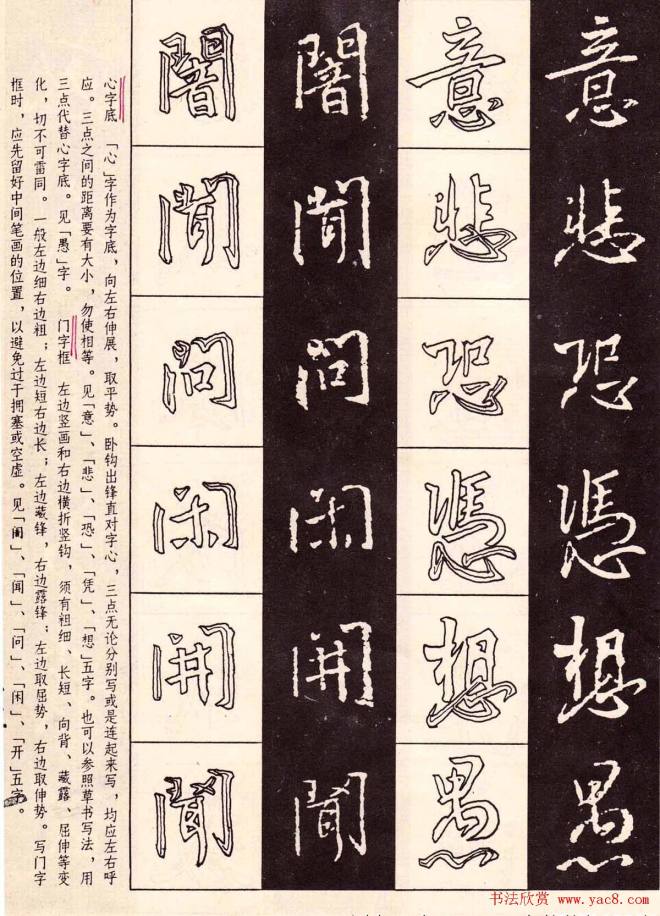 意悲恐憑想愚
意悲恐憑想愚
闇聞問閑開聞
闇聞問閑開聞
心字底　「心」字作为字底，向左右伸展，取平势。卧钩出锋直对字心，三点无论分别写或是连起来写，均应左右呼
应。三点之间的距离要有大小，勿使相等。见「意」、「悲」、「恐」、「凭」、「想」五字。也可以参照草书写法，用
三点代替心字底。见「愚」字。　门字框　左边竖画和右边横折竖钩，须有粗细、长短、向背、藏露、屈伸等变
化，切不可雷同。一般左边细右边粗；左边短右边长；左边藏锋，右边露锋；左边取屈势，右边取伸势。写门字
框时，应先留好中间笔画的位置，以避免过于拥塞或空虚。见「闇」、「闻」、「问」、「闲」、「开」五字。
书法欣赏 www.yac8.com